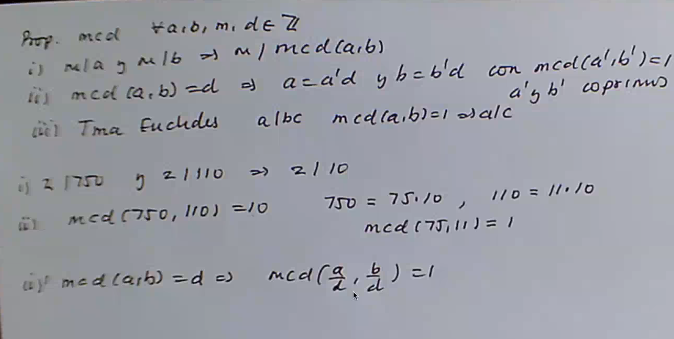 Prop. mcd ∀a,b,m,d ∈ ℤ
i) m/a y m/b ⇒ m/mcd(a,b)
ii) mcd(a,b)=d ⇒ a=a'd y b=b'd con mcd(a',b')=1
a' y b' coprimos
iii) Tma Euclides a/bc mcd(a,b)=1 ⇒ a/c
i) 2/750 y 2/110 ⇒ 2/10
ii) mcd(750,110)=10 750=75·10, 110=11·10
mcd(75,11)=1
ii)' mcd(a,b)=d ⇒ mcd(a/d, b/d)=1